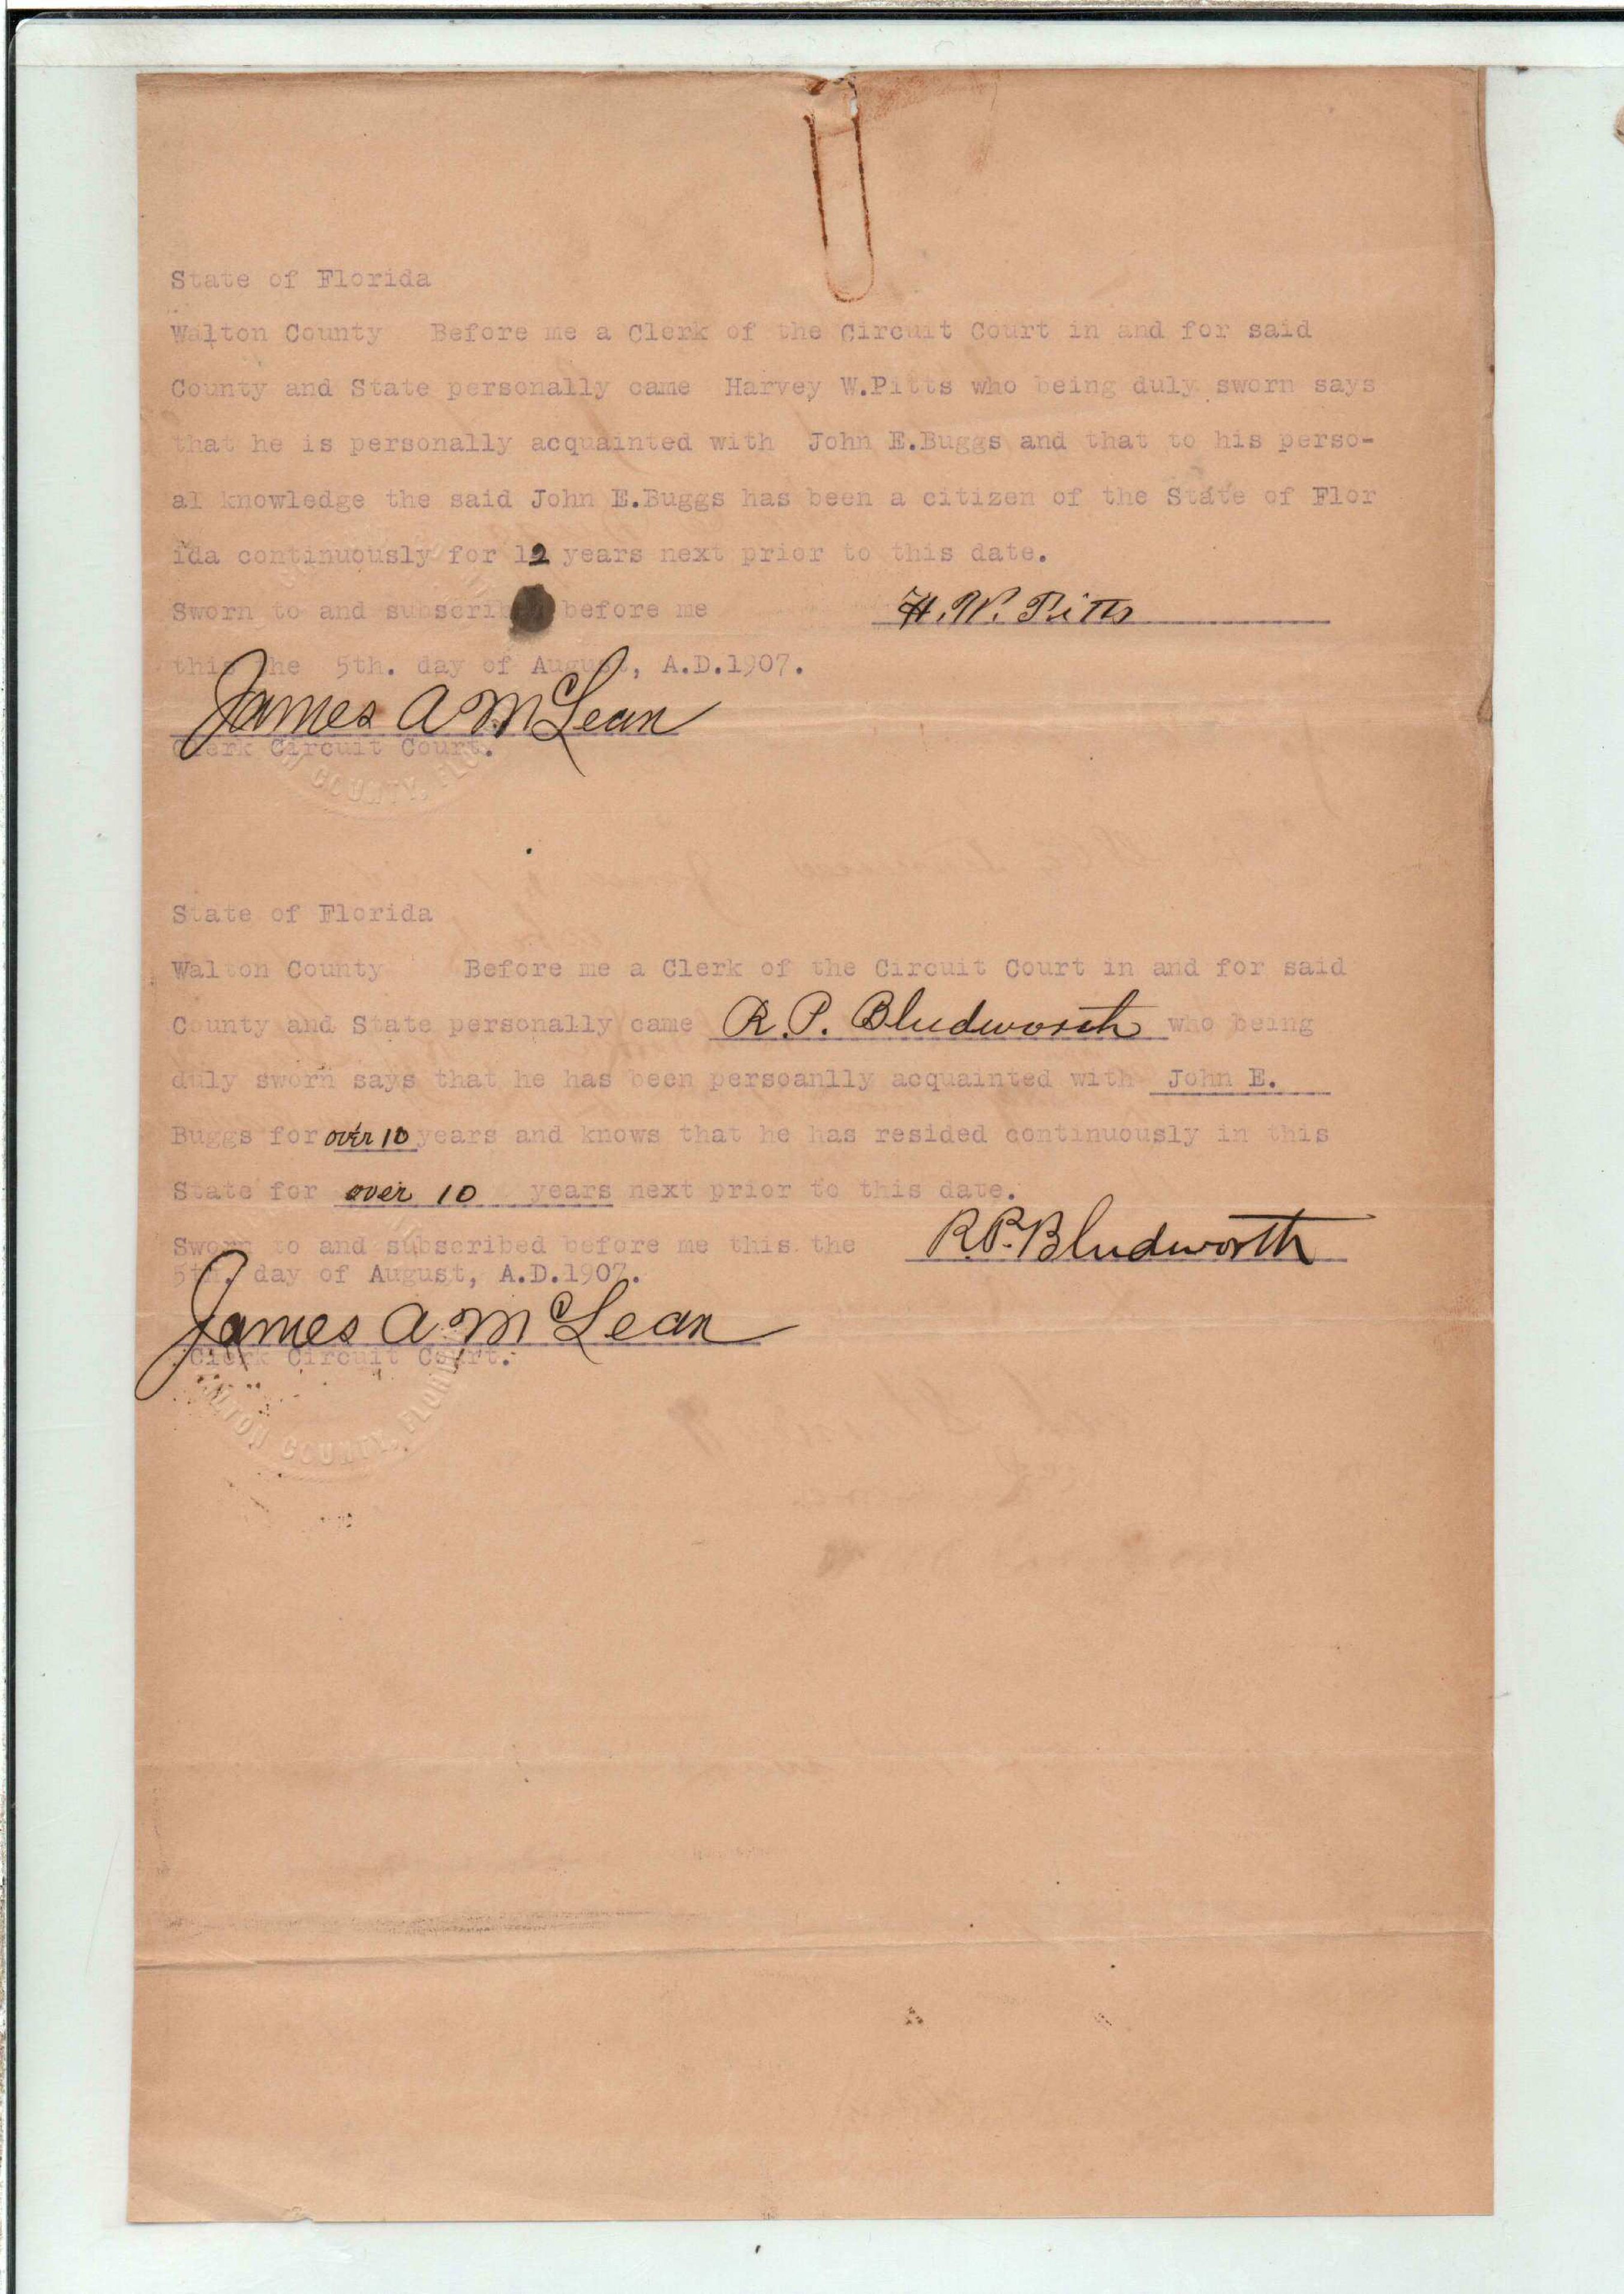 State of Florida
Walton County Before me a Clerk of the Circuit Court in and for said
County and State personally came Harvey W.Pitts who being duly sworn says
that he is personally acquainted with John E.Buggs and that to his perso-
al knowledge the said John E.Buggs has been a citizen of the State of Flor
ida continuously for 12 years next prior to this date.
Sworn to and subscribed before me H.W. Pitts
this the 5th. day of August, A.D.1907.
James A McLean
Clerk Circuit Court.
COUNTY, FLO
State of Florida
Walton County Before me a Clerk of the Circuit Court in and for said
County and State personally came R.P. Bludworth who being
duly sworn says that he has been persoanlly acquainted with John E.
Buggs for over 10 years and knows that he has resided continuously in this
State for over 10 years next prior to this date.
Sworn to and subscribed before me this the R.P. Bludworth
5th. day of August, A.D.1907.
James A. McLean
Clerk Circuit Court.
WALTON COUNTY, FLORIDA